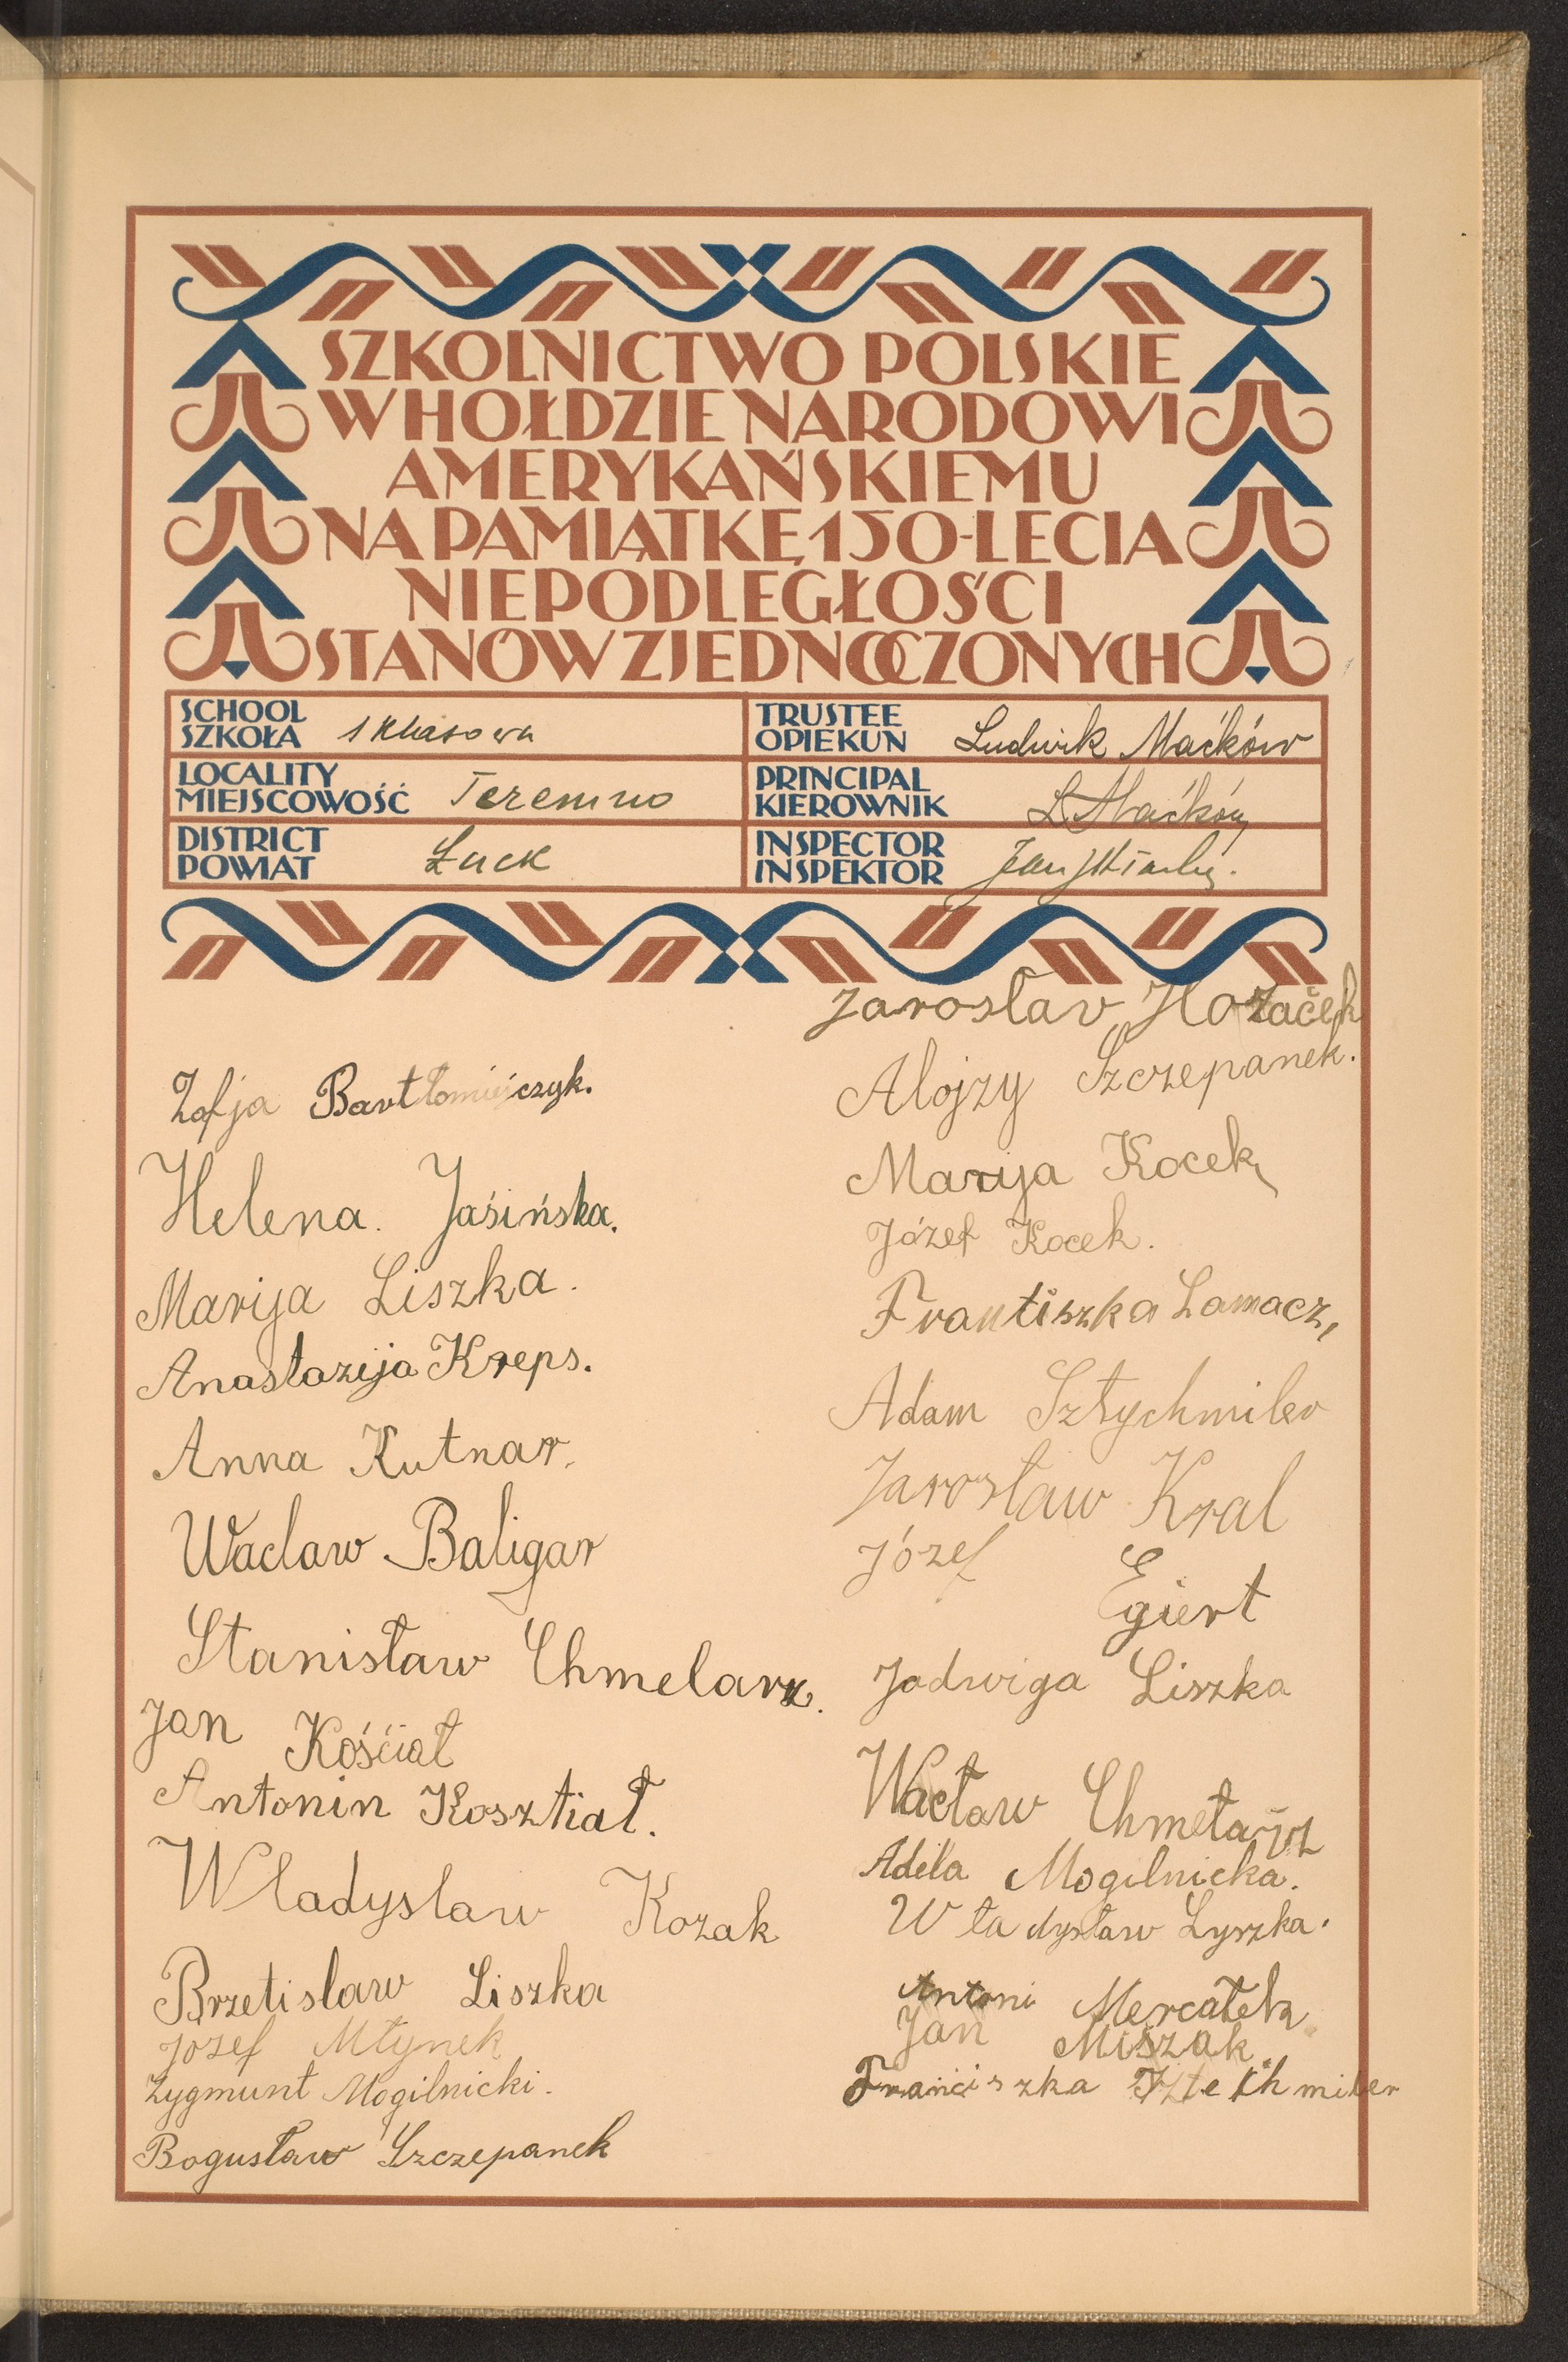 SZKOLNICTWO POLSKIE
W HOŁDZIE NARODOWI
AMERYKAŃSKIEMU
NA PAMIĄTKĘ 150-LECIA
NIEPODLEGŁOŚCI
STANÓW ZJEDNOCZONYCH
SCHOOL
SZKOŁA 1 klasowa
LOCALITY
MIEJSCOWOŚĆ Teremno
DISTRICT
POWIAT Łuck
TRUSTEE
OPIEKUN Ludwik Maćków
PRINCIPAL
KIEROWNIK L Maćków
INSPECTOR
INSPEKTOR Jan
Zofja Bartłomiejczyk.
Helena. Jaśińska.
Marija Liszka.
Anastazija Kreps.
Anna Kutnar.
Waclaw Baligar
Stanisław Chmelarz.
Jan Kośćiał
Antonin Kosztiał.
Władyslaw Kozak
Brzetislaw Liszka
Józef Młynek
Zygmunt Mogilnicki.
Bogusław Szczepanek
Jaroslav
Alojzy Szczepanek.
Marija Kocek
Józef Kocek.
Frantiszka Lamacz,
Adam Sztychmiler
Jarosław Kral
Józef Egiert
Jadwiga Liszka
Wacław Chmełarz
Adela Mogilnicka.
Władysław Lyszka.
Antoni Mercatek
Jan Miszak
Franciszka